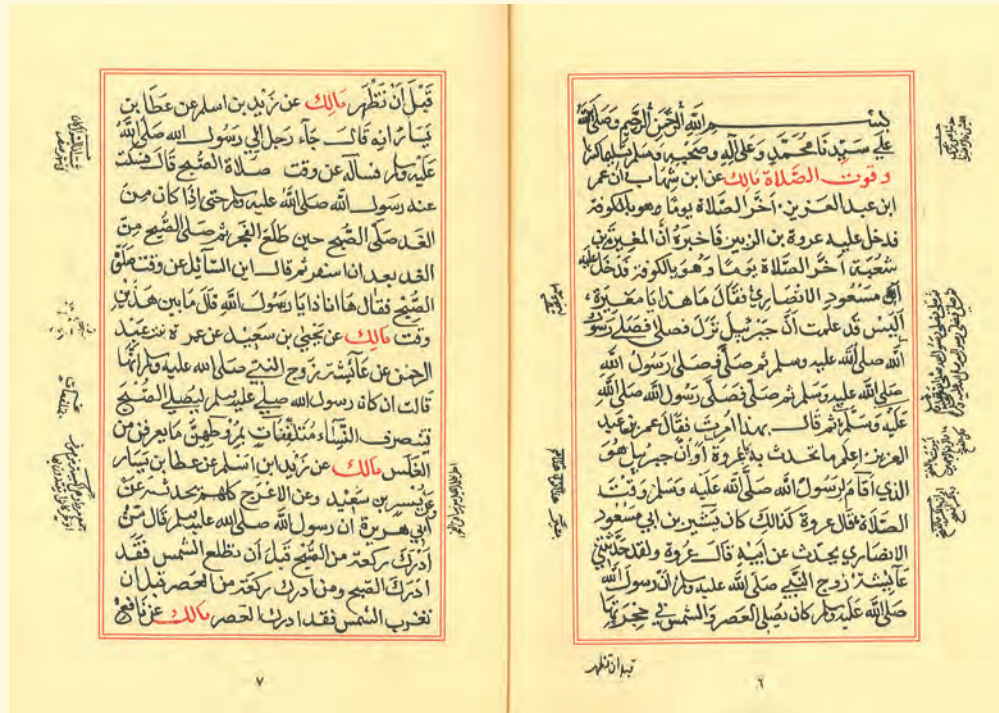 بسم الله الرحمن الرحيم وصلى الله
على سيدنا محمد وعلى آله وصحبه وسلم تسليما كثيرا
وقوت الصلاة مالك عن ابن شهاب ان عمر
ابن عبد العزيز اخر الصلاة يوما وهو بالكوفة
فدخل عليه عروة بن الزبير فاخبره أن المغيرة بن
شعبة اخر الصلاة يوما وهو بالكوفة فدخل عليه
ابو مسعود الانصاري فقال ما هذا يا مغيرة
أليس قد علمت أن جبرئيل نزل فصلى فصلى رسول
الله صلى الله عليه وسلم ثم صلى فصلى رسول الله
صلى الله عليه وسلم ثم صلى فصلى رسول الله صلى الله
عليه وسلم ثم قال بهذا امرت فقال عمر بن عبد
العزيز اعلم ما تحدث به يا عروة أو أن جبرئيل هو
الذي أقام لرسول الله صلى الله عليه وسلم وقت
الصلاة قال عروة كذالك كان بشير بن ابي مسعود
الانصاري يحدث عن أبيه قال عروة ولقد حدثتني
عائشة زوج النبي صلى الله عليه وسلم ان رسول الله
صلى الله عليه وسلم كان يصلي العصر والشمس في حجرتها
قبل ان تظهر
٦
قبل أن تظهر مالك عن زيد بن اسلم عن عطا بن
يسار انه قال جاء رجل الى رسول الله صلى الله
عليه وسلم فسأله عن وقت صلاة الصبح قال فسكت
عنه رسول الله صلى الله عليه وسلم حتى اذا كان من
الغد صلى الصبح حين طلع الفجر ثم صلى الصبح من
الغد بعد ان اسفر ثم قال اين السائل عن وقت صلاة
الصبح فقال ها انا ذا يا رسول الله قال ما بين هذين
وقت مالك عن يحيى بن سعيد عن عمرة بنت عبد
الرحمن عن عائشة زوج النبي صلى الله عليه وسلم انها
قالت ان كان رسول الله صلى عليه وسلم ليصلي الصبح
فينصرف النساء متلففات بمروطهن ما يعرفن من
الغلس مالك عن زيد ابن اسلم عن عطا بن يسار
وعن بسر بن سعيد وعن الاعرج كلهم يحدثه عن
أبي هريرة أن رسول الله صلى الله عليه وسلم قال من
أدرك ركعة من الصبح قبل أن تطلع الشمس فقد
ادرك الصبح ومن ادرك ركعة من العصر قبل ان
تغرب الشمس فقد ادرك العصر مالك عن نافع
٧